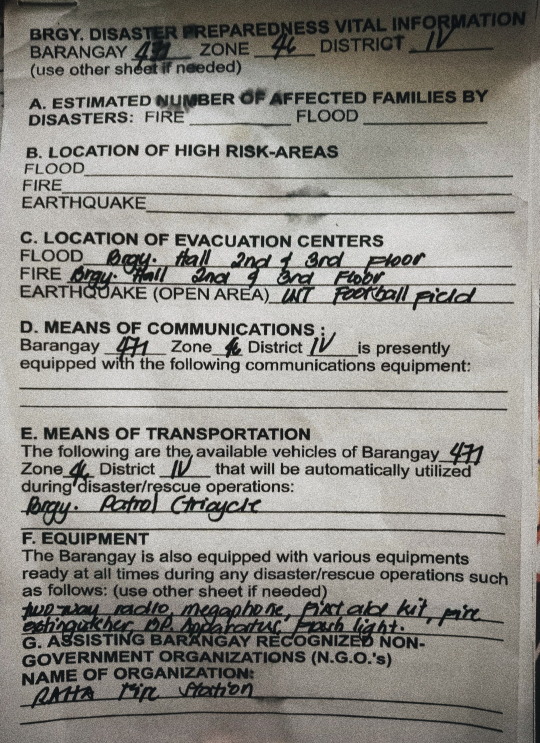 BRGY. DISASTER PREPAREDNESS VITAL INFORMATION
BARANGAY 471 ZONE 46 DISTRICT IV
(use other sheet if needed)
A. ESTIMATED NUMBER OF AFFECTED FAMILIES BY
DISASTERS: FIRE FLOOD
B. LOCATION OF HIGH RISK-AREAS
FLOOD
FIRE
EARTHQUAKE
C. LOCATION OF EVACUATION CENTERS
FLOOD Brgy. Hall 2nd & 3rd Floor
FIRE Brgy. Hall 2nd & 3rd Floor
EARTHQUAKE (OPEN AREA) Football Field
D. MEANS OF COMMUNICATIONS :
Barangay 471 Zone 46 District IV is presently
equipped with the following communications equipment:
E. MEANS OF TRANSPORTATION
The following are the available vehicles of Barangay 471
Zone 46 District IV that will be automatically utilized
during disaster/rescue operations:
Brgy. Patrol (tricycle
F. EQUIPMENT
The Barangay is also equipped with various equipments
ready at all times during any disaster/rescue operations such
as follows: (use other sheet if needed)
two-way radio, megaphone, first aid kit, fire
extinguisher, BP flash light.
G. ASSISTING BARANGAY RECOGNIZED NON-
GOVERNMENT ORGANIZATIONS (N.G.O.'s)
NAME OF ORGANIZATION:
RAHA Fire Station